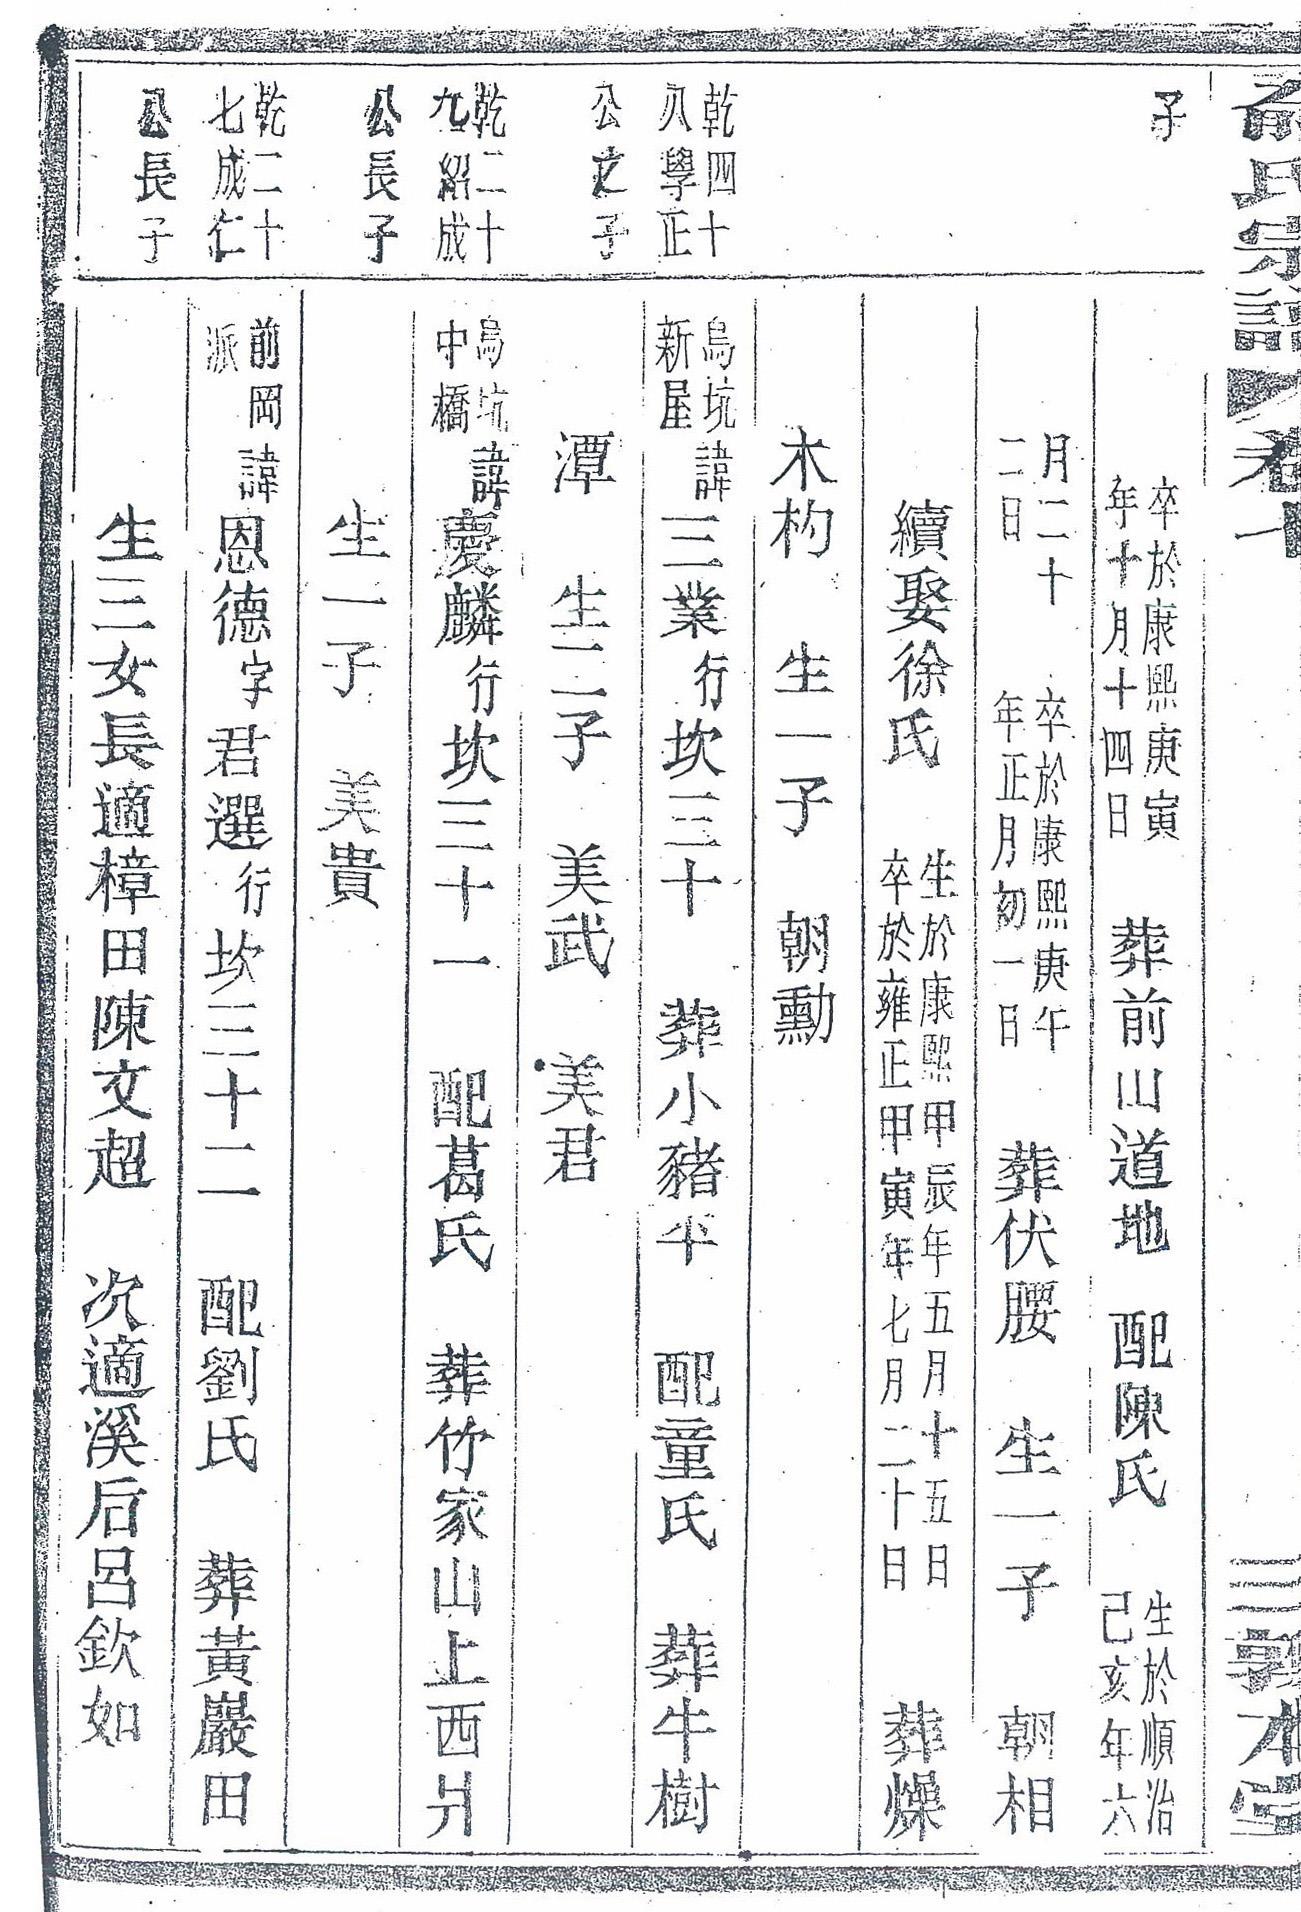 俞氏宗譜 卷十一 三 敦本堂
子
卒於康熙庚寅
年十月十四日
葬前山道地 配陳氏
生於順治
己亥年六
月二十
二日
卒於康熙庚午
年正月初一日
葬伏腰 生一子 朝相
續娶徐氏
生於康熙甲辰年五月十五日
卒於雍正甲寅年七月二十日
葬燥
木杓 生一子 朝勳
乾四十
八學正
公之子
烏坑
新屋
諱三業行坎三十 葬小豬平 配童氏 葬牛樹
潭 生二子 美武 美君
乾二十
九紹成
公長子
烏坑
中橋
諱慶麟行坎三十一 配葛氏 葬竹家山上西爿
生一子 美貴
乾二十
七成仁
公長子
前岡
派
諱恩德字君選行坎三十二 配劉氏 葬黃巖田
生三女長適樟田陳文超 次適溪后呂欽如